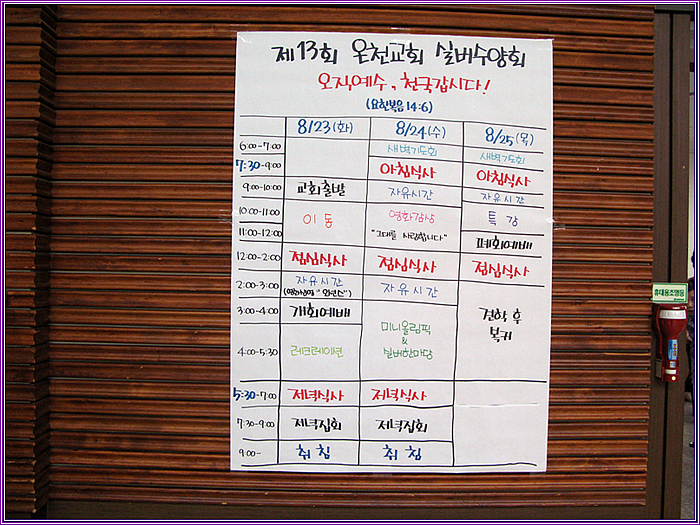 제13회 온천교회 실버수양회
오직예수, 천국갑시다!
(요한복음 14:6)
8/23(화) 8/24(수) 8/25(목)
6:00-7:00 새벽기도회 새벽기도회
7:30-9:00 아침식사 아침식사
9:00-10:00 교회출발 자유시간 자유시간
10:00-11:00 이동 영화감상 특강
11:00-12:00 "그대를 사랑합니다" 폐회예배
12:00-2:00 점심식사 점심식사 점심식사
2:00-3:00 자유시간 자유시간
3:00-4:00 개회예배
견학 후
복귀
4:00-5:30 레크레이션
미니올림픽
&
실버한마당
5:30-7:00 저녁식사 저녁식사
7:30-9:00 저녁집회 저녁집회
9:00- 취침 취침
휴대용조명등